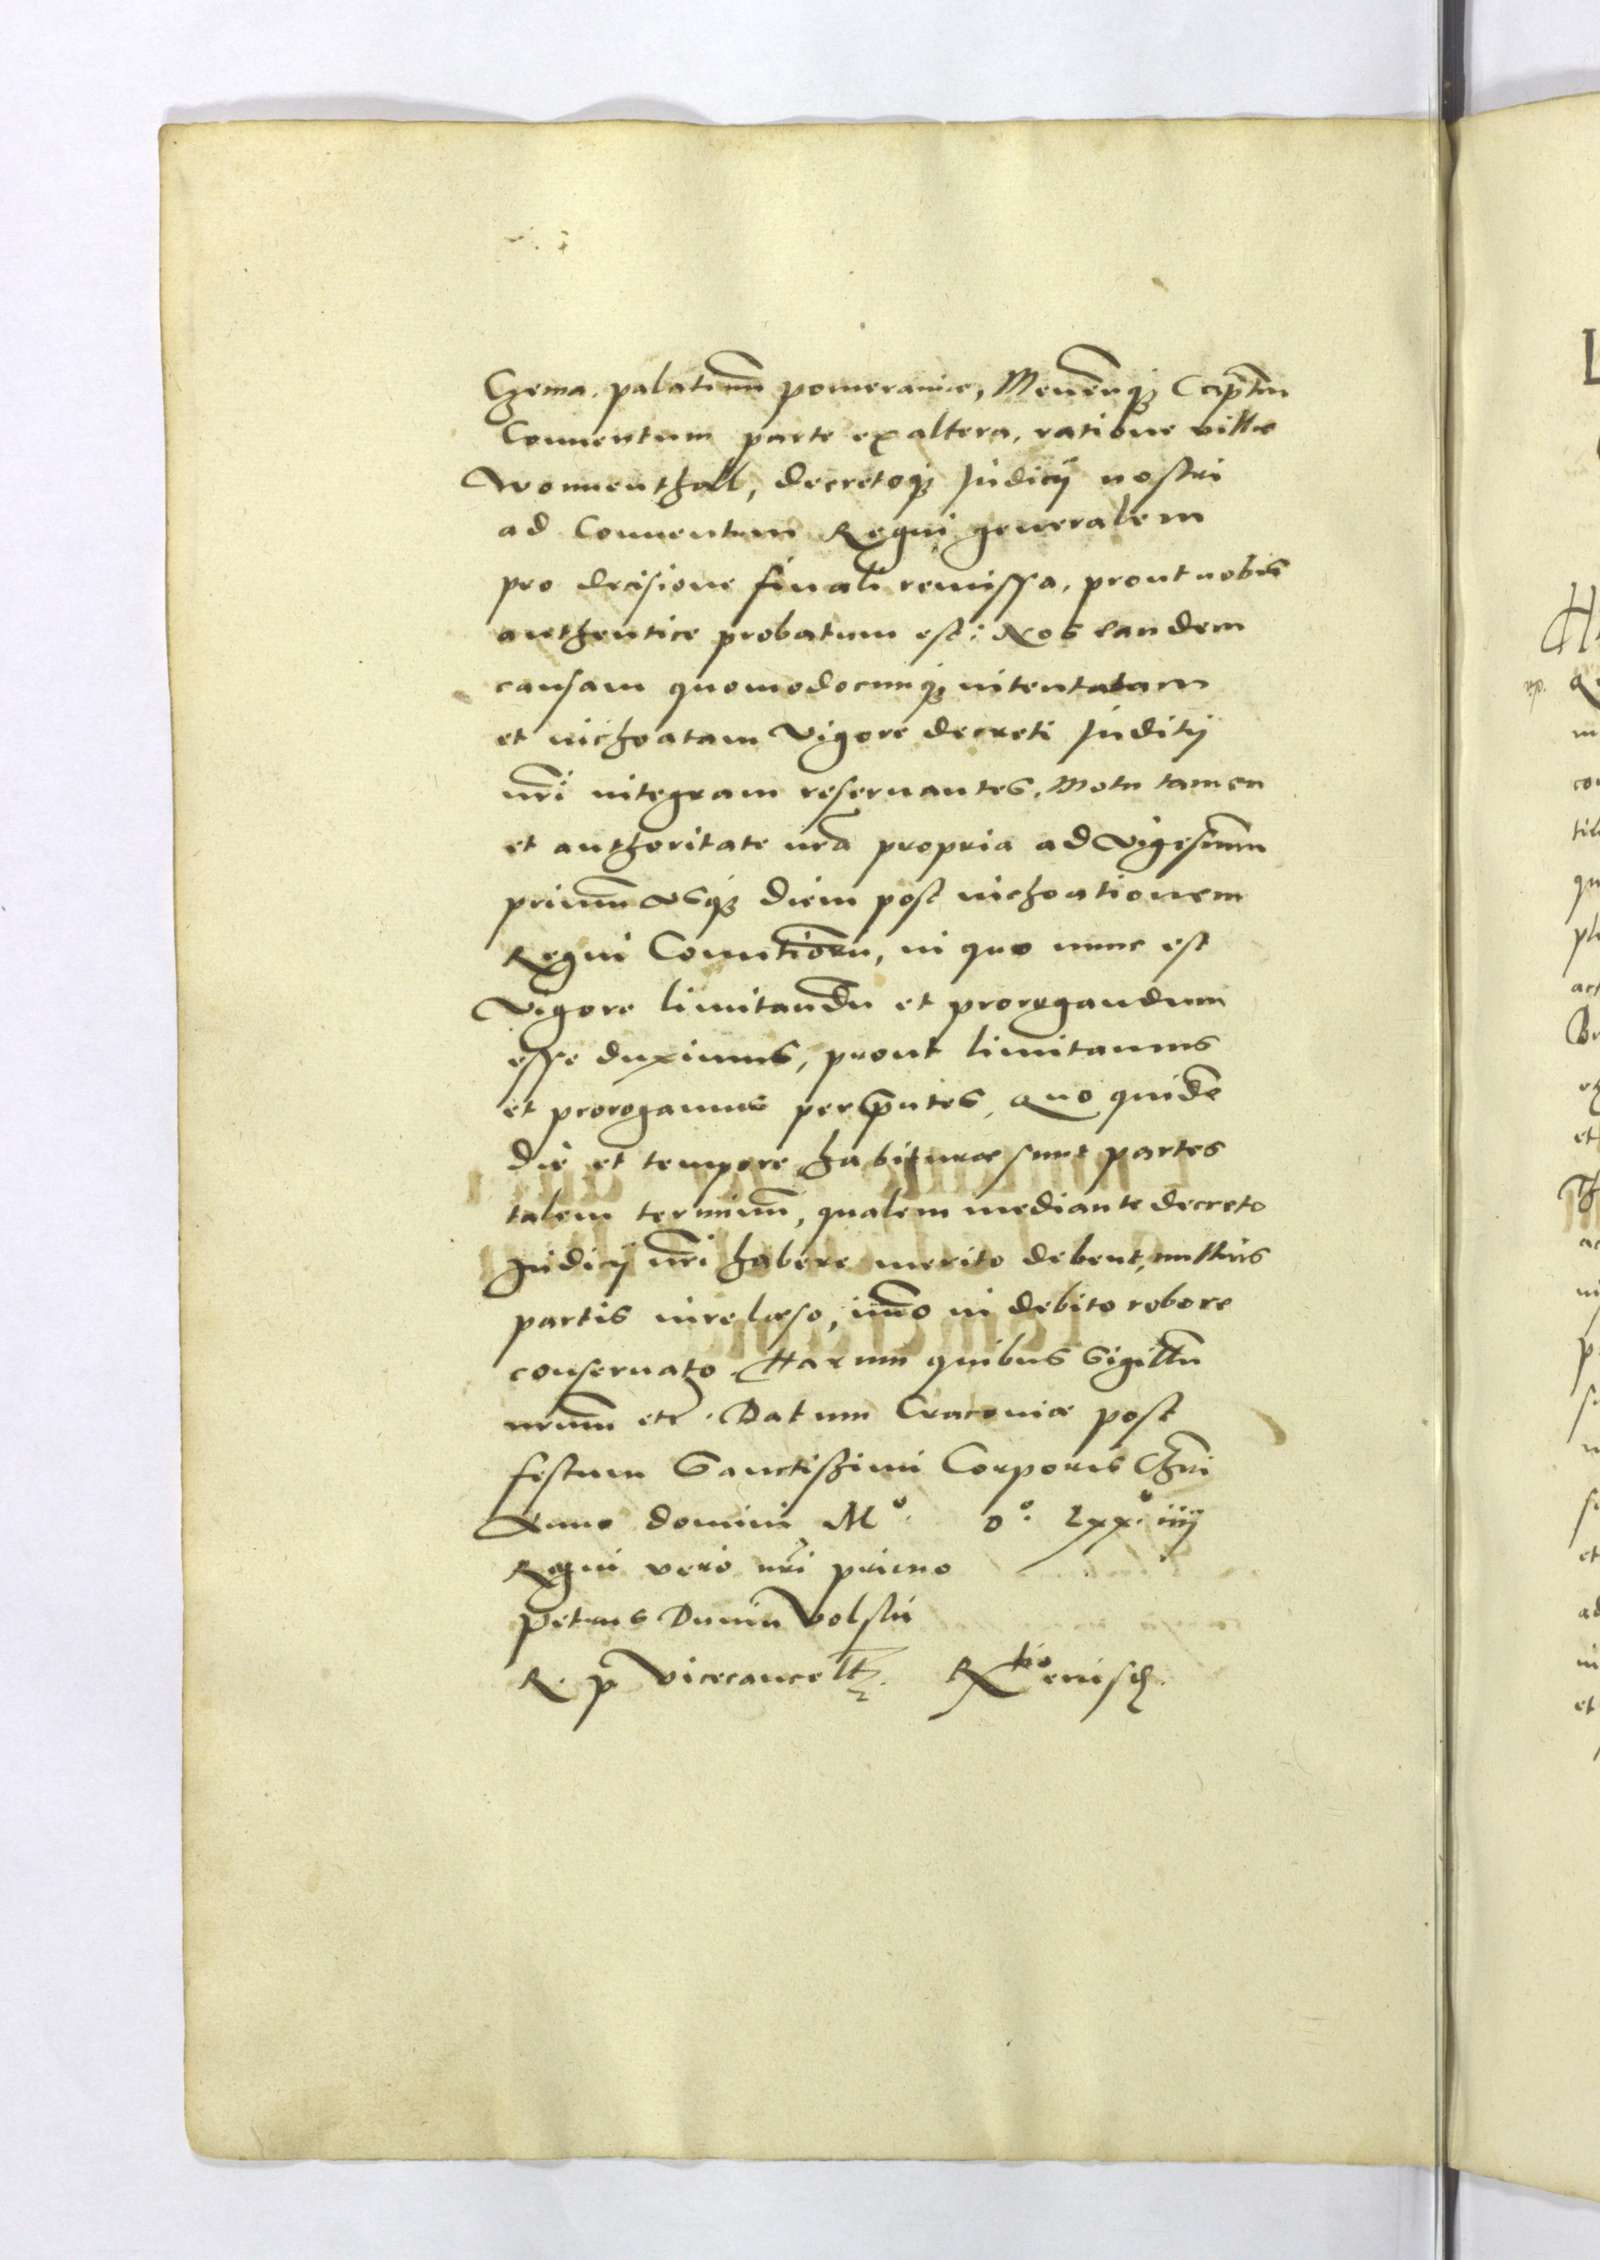 Czema, palatinū pomeraniæ, Meuēnq̨ Capt̄m
Conuentum parte ex altera, ratione villæ
Wonnenthall, decretoq̨ Judicij nostri
ad Conuentum Regni generalem
pro decisione finali remissa, prout nobis
authentice probatum est: Nos eandem
causam quomodocunq̨ intentatam
et inchoatam Vigore decreti Juditij
nr̄i integram reseruantes, Motu tamen
et authoritate nr̄a propria ad Vigesimum
primum Vsq̨ diem post inchoationem
Regni Comitiorū, in quo nunc est
Vigore limitandū et prorogandum
esse duximus, prout limitamus
et prorogamus per p̄ntes, Quo quidē
die et tempore habituræ sunt partes
talem terminū, qualem mediante decreto
Judicij nr̄i habere merito debent, nullius
partis iure læso, imo in debito robore
conseruato. Harum quibus Sigillū
nr̄um etc. Datum Cracouiæ post
festum Sanctissimi Corporis Chr̄i
Anno domini Mº. Dº. Lxxº. iiij
Regni vero nr̄i primo
Petrus Dunin Volski
R. P. Vicecancell.